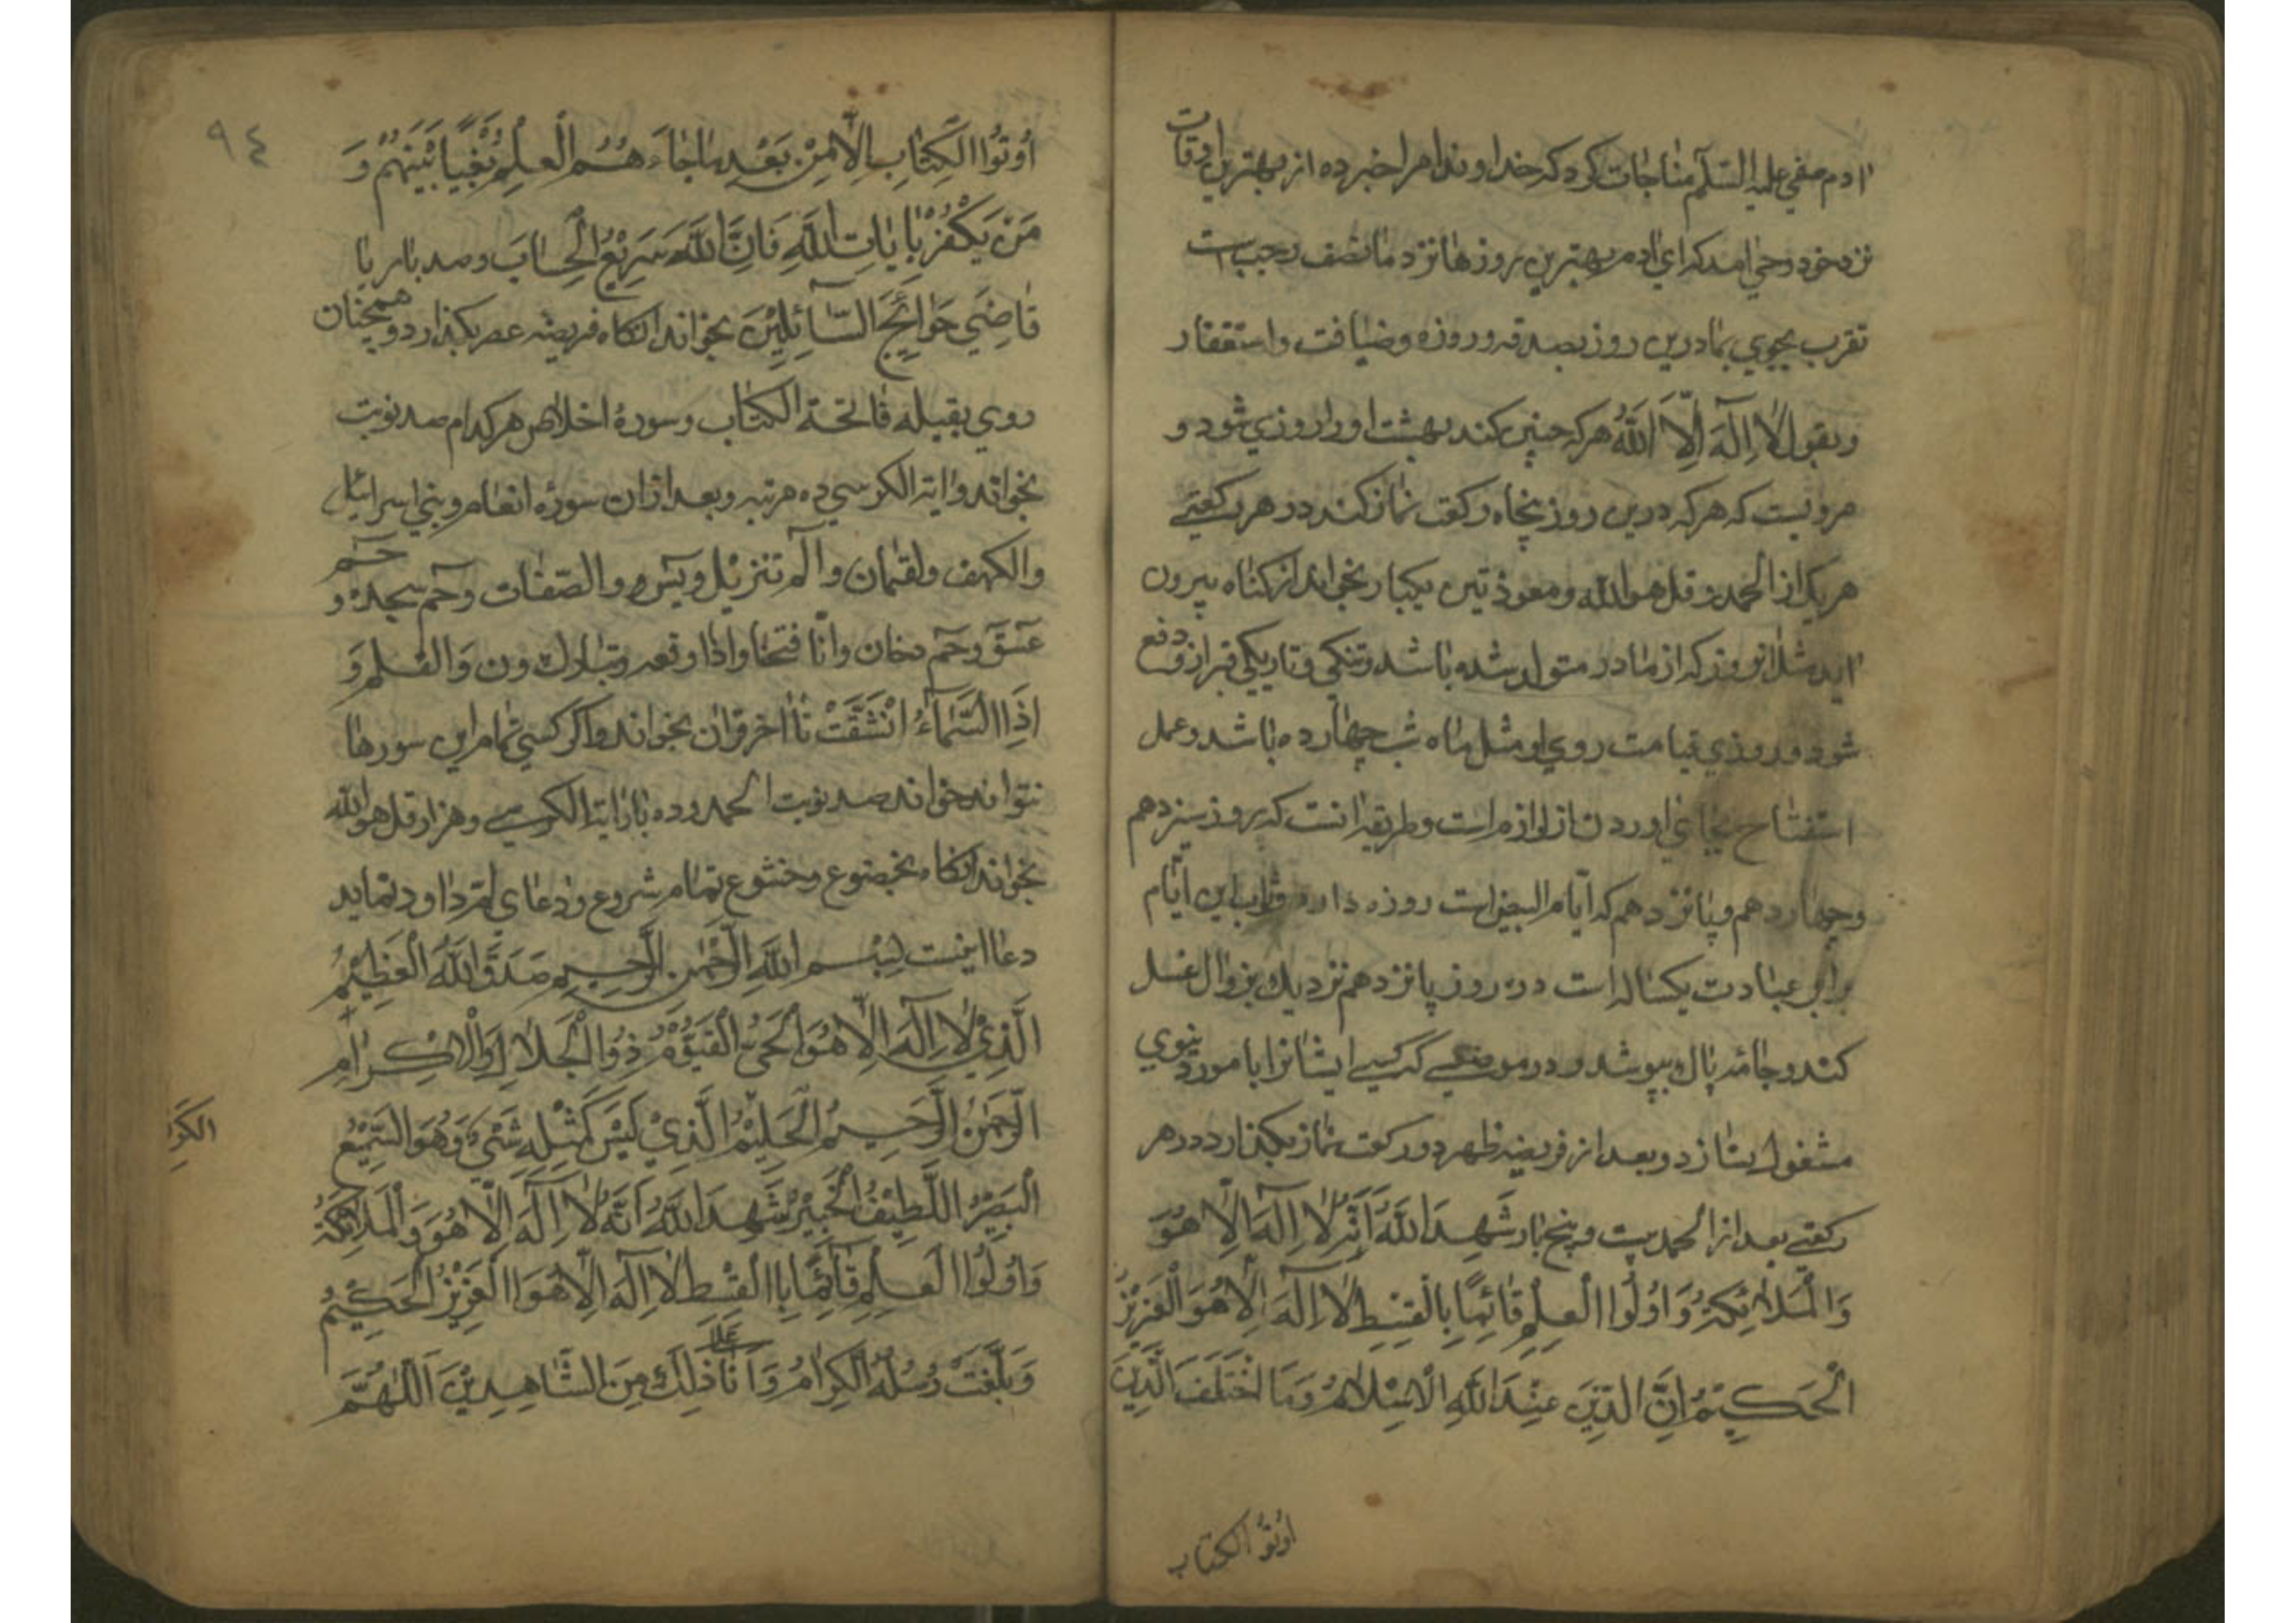 ادم صفي عليه السّلم مناجات كرد كه خداوندا مرا خبر ده از بهترين اوقات
نزد خود وحي امد كه اي ادم بهترين روزها نزد ما نصف رجب است
تقرب بجوي بما درين روز بصدقه و روزه و ضيافت و استغفار
و بقول لا اِلٰهَ اِلّا اللّٰهُ هر كه چنين كند بهشت او را روزي شود و
مرويست كه هر كه درين روز پنجاه ركعت نماز كند در هر ركعتي
هر يك از الحمد و قل هو اللّه و معوذتين يكبار بخواند از كناه بيرون
ايد مثل انروز كه از مادر متولد شده باشد و تنكي و تاريكي قبر ازو دفع
شود و روزي قيامت روي او مثل ماه شب چهارده باشد و عمل
استفتاح بجاي اوردن از لوازم است و طريقه انست كه بروز سيزدهم
و چهاردهم و پانزدهم كه ايّام البيض است روزه دارد و ثواب اين ايّام
برابر عبادت يكساله است در روز پانزدهم نزديك بزوال غسل
كند و جامۀ پاك بپوشد و در موضعي كه كسي ايشانرا بامور دنيوي
مشغول نسازد و بعد از فريضۀ ظهر دو ركعت نماز بكذارد در هر
ركعتي بعد از الحمد بيست و پنج بار شَهِدَ اللّٰهُ اَنَّهُ لا اِلٰهَ اِلّا هُوَ
وَالْمَلائِكَةُ وَاُولُوا الْعِلْمِ قَائِمًا بِالْقِسْطِ لا اِلٰهَ اِلّا هُوَ الْعَزِيْزُ
الْحَكِيْمُ اِنَّ الدِّيْنَ عِنْدَ اللّٰهِ الْاِسْلَامُ وَمَا اخْتَلَفَ الَّذِيْنَ
اوتوُ الكتاب
٩٤
اُوْتُوا الْكِتَابِ اِلّا مِنْ بَعْدِ مَا جَاءَ هُمُ الْعِلْمُ بَغْيًا بَيْنَهُمْ وَ
مَنْ يَكْفُرْ بِاٰيَاتِ اللّٰهِ فَاِنَّ اللّٰهَ سَرِيْعُ الْحِسَابَ و صد بار يا
قَاضِيَ حَوَائِجَ السَّائِلِيْنَ بخواند انكاه فريضۀ عصر بكذارد و همچنان
روي بقبله فاتحة الكتاب و سورۀ اخلاص هر كدام صد نوبت
بخواند و اية الكرسي ده مرتبه و بعد ازان سورۀ انعام و بني اسرائيل
والكهف و لقمان و الٓم تنزيل و يٓس و والصّفات و حٓم سجده و حٓم
عٓسٓقٓ و حٓم دخان و انّا فتحنا و اذا وقعه و تبارك و ن وَالقلم وَ
اِذَا السَّمَاءُ انْشَقَّتْ تا اخر قران بخواند و اكر كسي تمام اين سورها
نتواند خواند صد نوبت الحمد و ده بار اية الكرسي و هزار قل هو اللّه
بخواند انكاه بخضوع و خشوع تمام شروع در دعاي ام داود نمايد
دعا اينست بِسْمِ اللّٰهِ الرَّحْمٰنِ الرَّحِيْمِ صَدَقَ اللّٰهُ الْعَظِيْمُ
الَّذِيْ لا اِلٰهَ اِلّا هُوَ الْحَيُّ الْقَيُّوْمُ ذُو الْجَلَالِ وَالْاِكْرَامِ
الرَّحْمٰنُ الرَّحِيْمُ الْحَلِيْمُ الَّذِيْ لَيْسَ كَمِثْلِهِ شَيْءٌ وَهُوَ السَّمِيْعُ
الكَرِ
الْبَصِيْرُ اللَّطِيْفُ الْخَبِيْرُ شَهِدَ اللّٰهُ اَنَّهُ لا اِلٰهَ اِلّا هُوَ وَالْمَلَائِكَةُ
وَاُولُوا الْعِلْمِ قَائِمًا بِاالْقِسْطِ لا اِلٰهَ اِلّا هُوَ الْعَزِيْزُ الْحَكِيْمُ
وَبَلَّغَتْ رُسُلُهُ الْكِرَامُ وَاَنَا عَلٰى ذٰلِكَ مِنَ الشَّاهِدِيْنَ اَللّٰهُمَّ